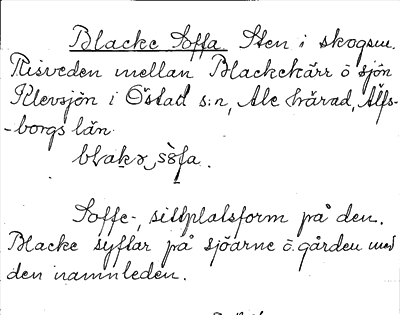 Blacke Soffa Sten i skogsm.
Risveden mellan Blackekärr o sjön
Klevsjön i Östad s:n, Ale härad, Älfs-
-borgs län.
blakə sòfa.
Soffe-, sittplatsform på den.
Blacke syftar på sjöarne o. gården med
den namnleden.